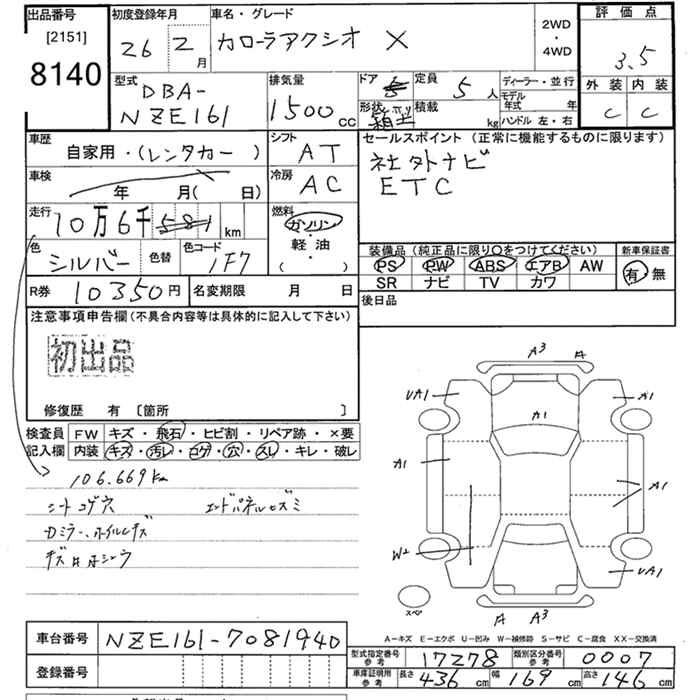 出品番号
[2151]
8140
初度登録年月
26 2月
車名・グレード
カローラアクシオ X
2WD
・
4WD
評価点
3.5
外装 内装
C C
型式
DBA-
NZE161
排気量
1500cc
ドア
定員
5人
ディーラー・並行
モデル
年式 年
ハンドル 左・右
形状
箱型
積載
kg
車歴
自家用・(レンタカー )
シフト
AT
車検
年 月( 日)
冷房
AC
走行
10万6千 km
燃料
ガソリン
・
軽油
・
( )
色
シルバー
色替
色コード
1F7
R券
10350円
名変期限 月 日
セールスポイント (正常に機能するものに限ります)
社外ナビ
ETC
装備品 (純正品に限り○をつけてください)
PS PW ABS エアB AW
SR ナビ TV カワ
新車保証書
有 無
後日品
注意事項申告欄(不具合内容等は具体的に記入して下さい)
初出品
修復歴 有 〔箇所 〕
検査員
記入欄
FW キズ・飛石・ヒビ割・リペア跡・×要
内装 キズ・汚レ・コゲ・穴・スレ・キレ・破レ
106.669km
シートコゲ穴 エンドパネルヒズミ
Dミラー、ホイルキズ
キズAホシュウ
A3 A
UA1 A1
A1
A1 A1
W2 UA1
スペア
A A3
A-キズ E-エクボ U-凹み W-補修跡 S-サビ C-腐食 XX-交換済
車台番号
NZE161-7081940
登録番号
型式指定番号
参考
17278
類別区分番号
参考
0007
車庫証明用
参考
長さ 436cm 幅 169cm 高さ 146cm